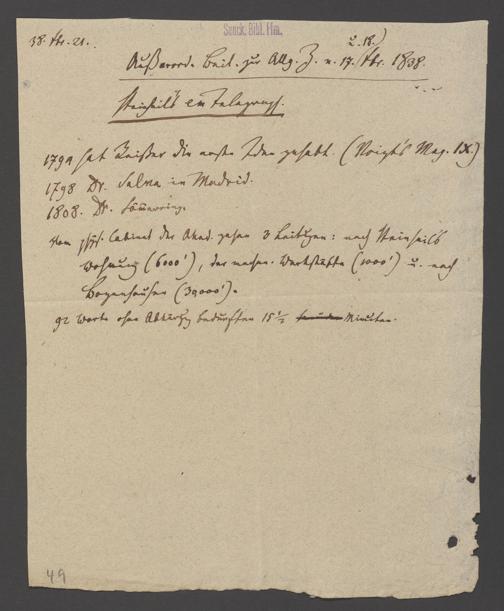 Senck. Bibl. Ffm.
38. Nr. 21.
u. 18.)
Außerord. Beil. zur Allg. Z. v. 17. 1838.
Steinheil's Telegraph.
1794 hat Reißer die erste Idee gehabt. (Voigt's Mag. IX.)
1798 Dr. Salva in Madrid.
1808. Dr. Sömmerring.
Vom phys. Cabinet der Akad. gehen 3 Leitungen: nach Steinheil's
Wohnung (6000'), der mechan. Werkstätte (1000') u. nach
Bogenhausen (30000').
92 Worte ohne bedurften 15 1/2 Minuten.
49